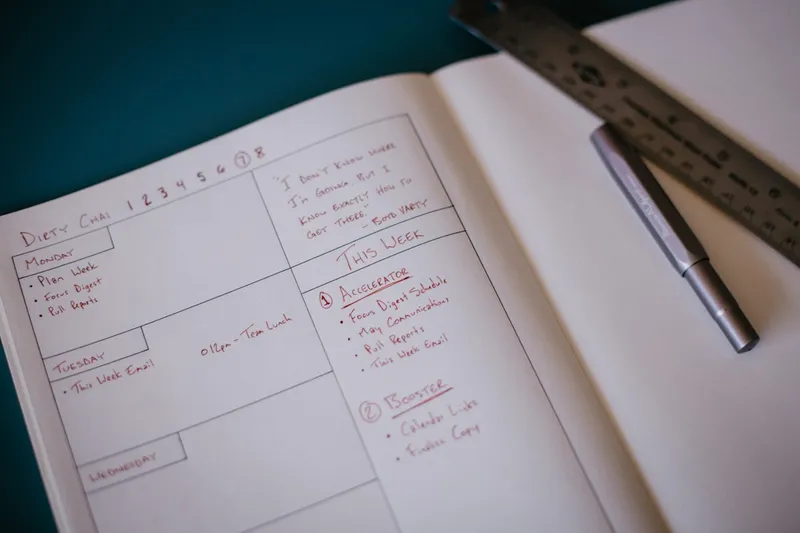 DIRTY CHAI 1 2 3 4 5 6 7 8
MONDAY
• Plan Week
• Focus Digest
• Pull Reports
TUESDAY
• This Week Email
o 12pm - Team Lunch
WEDNESDAY
"I DON'T KNOW WHERE
I'M GOING, BUT I
KNOW EXACTLY HOW TO
GET THERE"
- BOYD VARTY
THIS WEEK
1 ACCELERATOR
• Focus Digest Schedule
• May Communications
• Pull Reports
• This Week Email
2 BOOSTER
• Calendar Links
• Finalize Copy